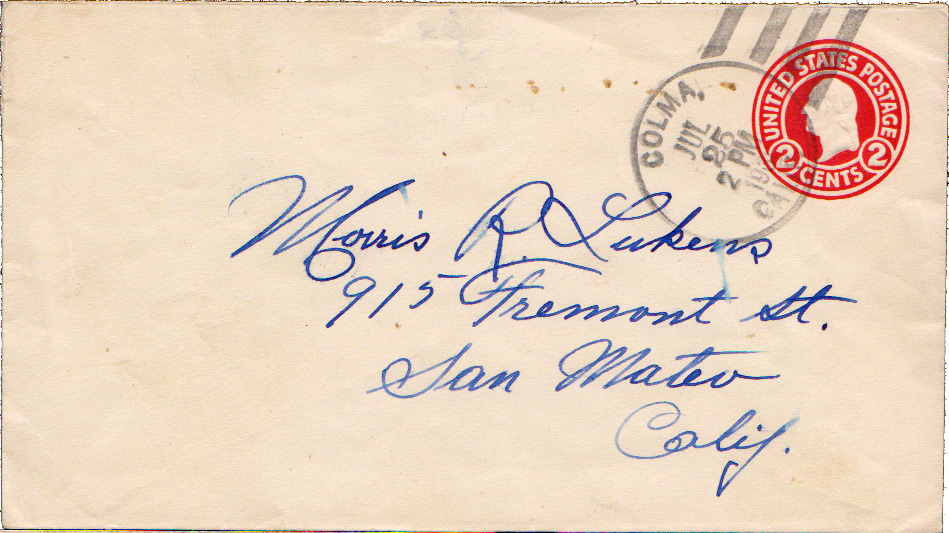 UNITED STATES POSTAGE
2 CENTS 2
COLMA,
JUL
25
2 PM
CAL
Morris R. Lukens
915 Fremont St.
San Mateo
Calif.